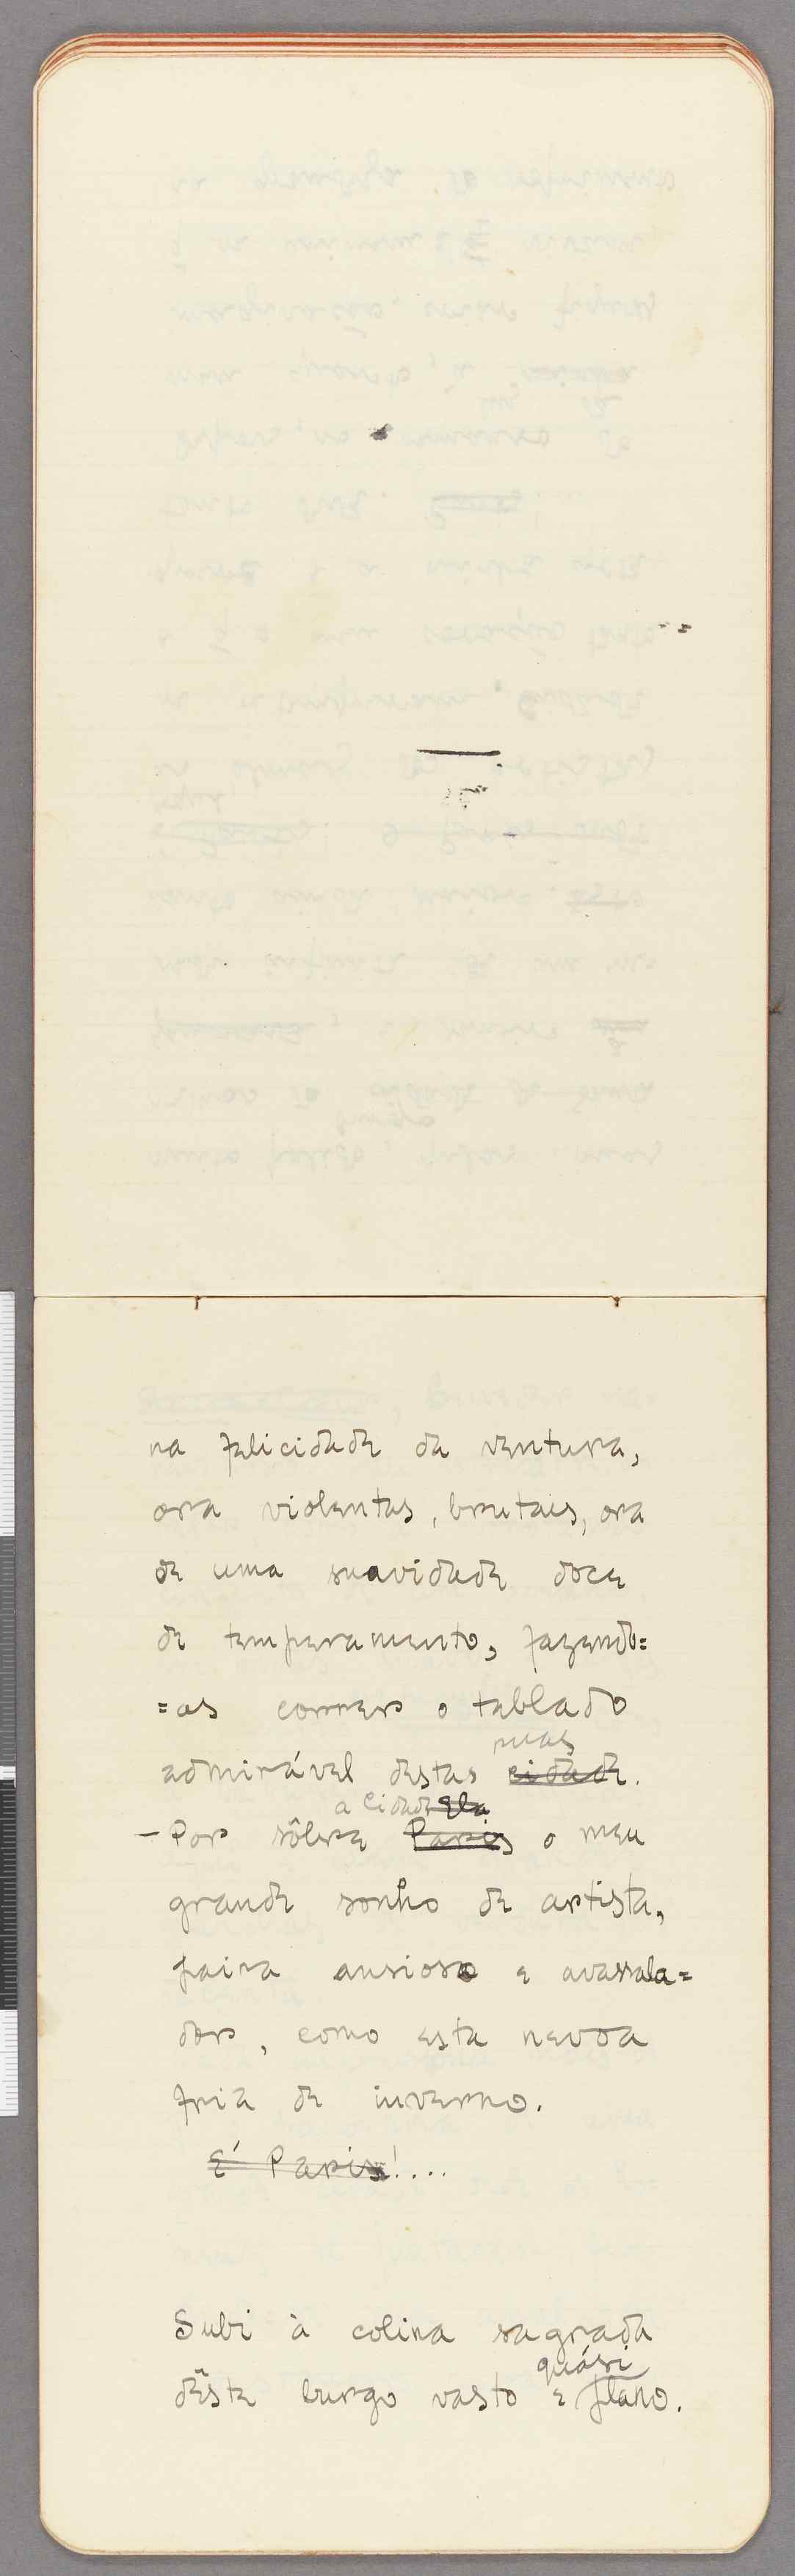 na felicidade da ventura,
ora violentas, brutais, ora
de uma suavidade doce
de temperamento, fazendo=
=as correr o tablado
ruas
admirável destas cidade.
a Cidade Ela
— Por sôbre Paris o meu
grande sonho de artista,
paira ansioso e avassala=
dor, como esta nevoa
fria de inverno.
E' Paris!....
Subi à colina sagrada
quási
dêste burgo vasto e plano.